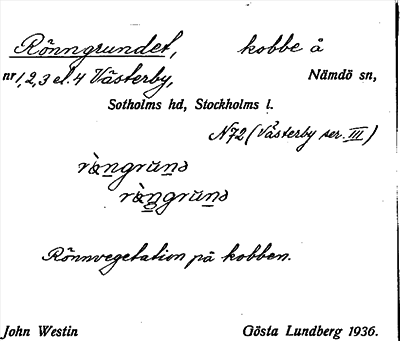 Rönngrundet, kobbe å
nr 1, 2, 3 el. 4 Västerby, Nämdö sn,
Sotholms hd, Stockholms l.
N72 (Västerby ser. III)
Rönnvegetation på kobben.
John Westin Gösta Lundberg 1936.